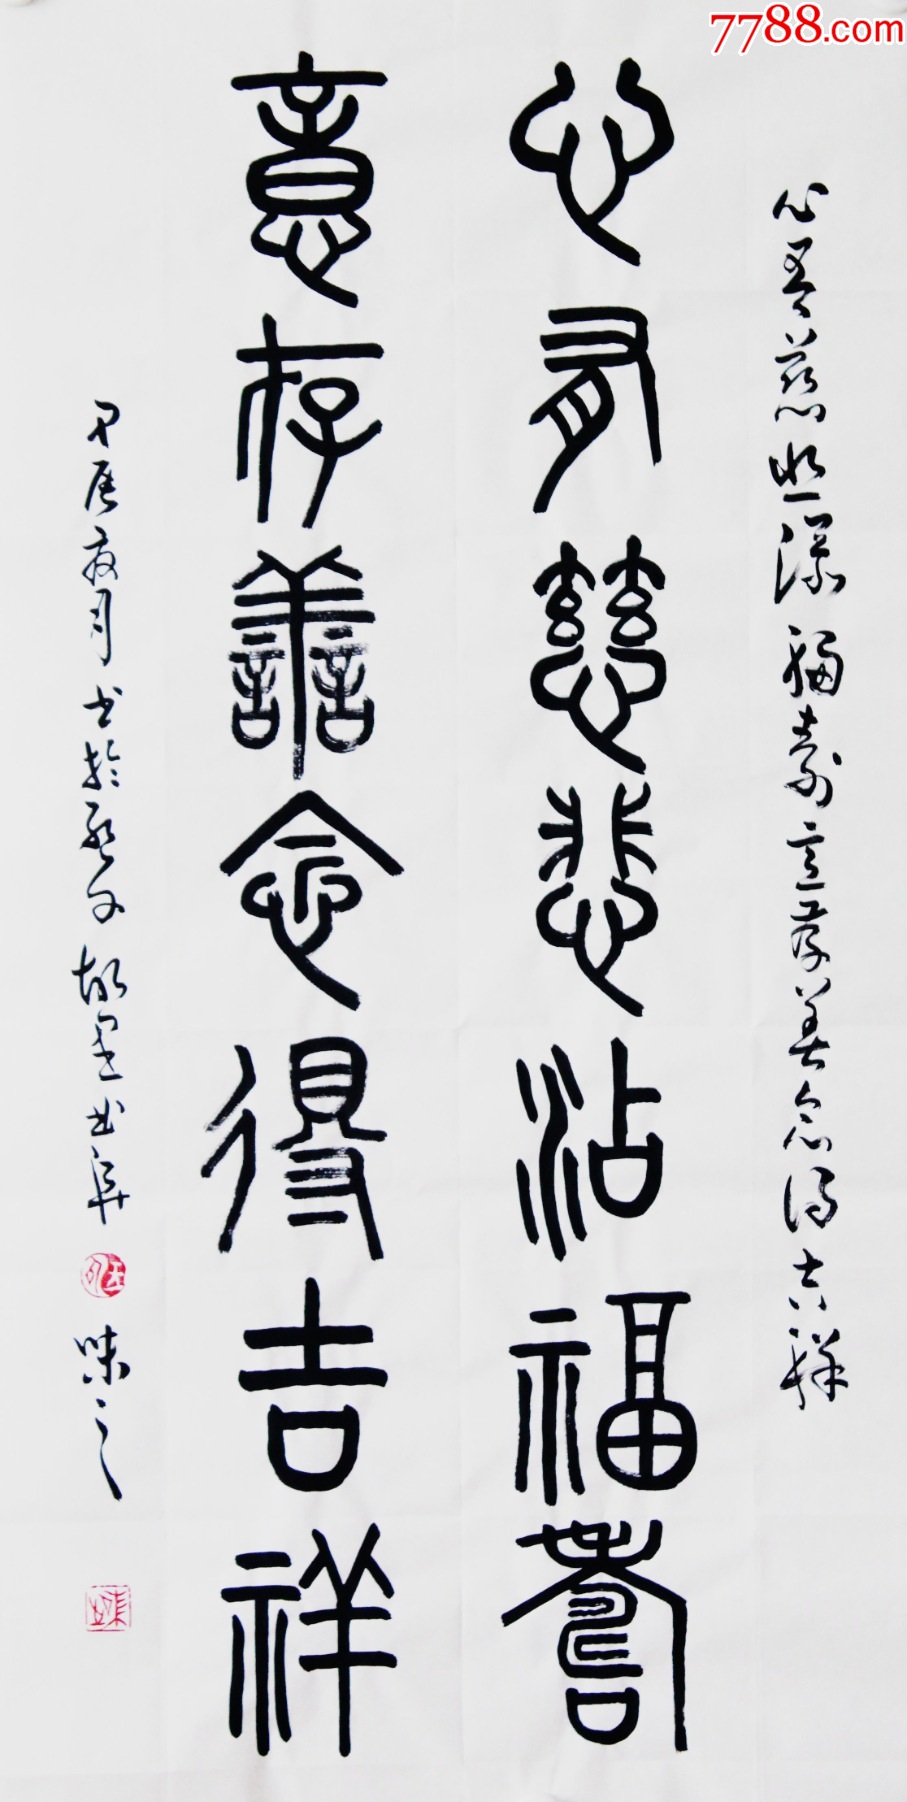 7788.com
心有慈悲添福寿意存善念得吉祥
心有慈悲沾福寿
意存善念得吉祥
甲辰 月书于 曲阜
味之